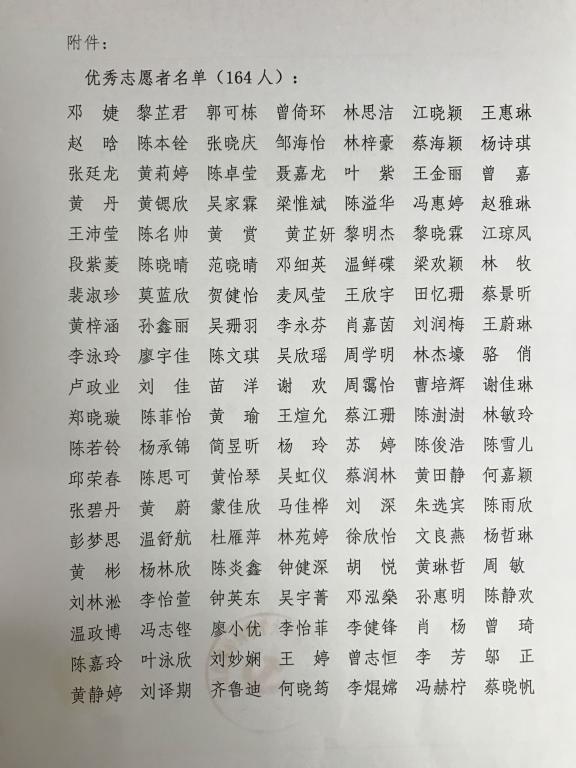 附件：
优秀志愿者名单（164人）：
邓　婕 黎芷君 郭可栋 曾倚环 林思洁 江晓颖 王惠琳
赵　晗 陈本铨 张晓庆 邹海怡 林梓豪 蔡海颖 杨诗琪
张廷龙 黄莉婷 陈卓莹 聂嘉龙 叶　紫 王金丽 曾　嘉
黄　丹 黄锶欣 吴家霖 梁惟斌 陈溢华 冯惠婷 赵雅琳
王沛莹 陈名帅 黄　赏 黄芷妍 黎明杰 黎晓霖 江琼凤
段紫菱 陈晓晴 范晓晴 邓细英 温鲜碟 梁欢颖 林　牧
裴淑珍 莫蓝欣 贺健怡 麦凤莹 王欣宇 田忆珊 蔡景昕
黄梓涵 孙鑫丽 吴珊羽 李永芬 肖嘉茵 刘润梅 王蔚琳
李泳玲 廖宇佳 陈文琪 吴欣瑶 周学明 林杰壕 骆　俏
卢政业 刘　佳 苗　洋 谢　欢 周霭怡 曹培辉 谢佳琳
郑晓璇 陈菲怡 黄　瑜 王煊允 蔡江珊 陈澍澍 林敏玲
陈若铃 杨承锦 简昱昕 杨　玲 苏　婷 陈俊浩 陈雪儿
邱荣春 陈思可 黄怡琴 吴虹仪 蔡润林 黄田静 何嘉颖
张碧丹 黄　蔚 蒙佳欣 马佳桦 刘　深 朱选宾 陈雨欣
彭梦思 温舒航 杜雁萍 林苑婷 徐欣怡 文良燕 杨哲琳
黄　彬 杨林欣 陈炎鑫 钟健深 胡　悦 黄琳哲 周　敏
刘林淞 李怡萱 钟英东 吴宇菁 邓泓燊 孙惠明 陈静欢
温政博 冯志铿 廖小优 李怡菲 李健锋 肖　杨 曾　琦
陈嘉玲 叶泳欣 刘妙娴 王　婷 曾志恒 李　芳 邬　正
黄静婷 刘译期 齐鲁迪 何晓筠 李焜嫦 冯赫柠 蔡晓帆